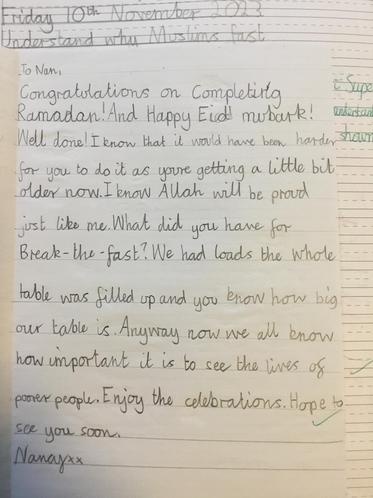 Friday 10th November 2023
Understand why Muslims fast
To Nan,
Congratulations on Completing
Ramadan! And Happy Eid! mubark!
Well done! I know that it would have been harder
for you to do it as youre getting a little bit
older now. I know Allah will be proud
just like me. What did you have for
Break-the-fast? We had loads the whole
table was filled up and you know how big
our table is. Anyway now we all know
how important it is to see the lives of
poorer people. Enjoy the celebrations. Hope to
see you soon.
Nanayxx